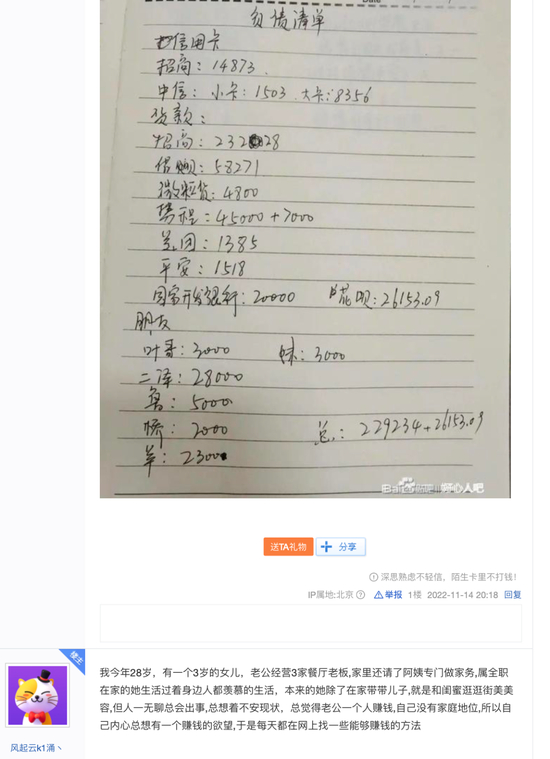 负债清单
信用卡
招商：14873
中信：小卡：1503 大卡：8356
贷款：
招商：232 28
借呗：58271
微粒贷：4800
携程：45000+7000
美团：1385
平安：1518
国家开发银行：20000 花呗：26153.09
朋友
叶香：3000 妹：3000
二泽：28000
鲁：5000
桥：2000 总：229234+26153.09
羊：2300
送TA礼物
分享
深思熟虑不轻信，陌生卡里不打钱！
IP属地:北京 举报 1楼 2022-11-14 20:18 回复
楼主
我今年28岁，有一个3岁的女儿，老公经营3家餐厅老板,家里还请了阿姨专门做家务,属全职
在家的她生活过着身边人都羡慕的生活，本来的她除了在家带带儿子,就是和闺蜜逛逛街美美
容,但人一无聊总会出事,总想着不安现状，总觉得老公一个人赚钱,自己没有家庭地位,所以自
己内心总想有一个赚钱的欲望,于是每天都在网上找一些能够赚钱的方法
风起云k1涌丶